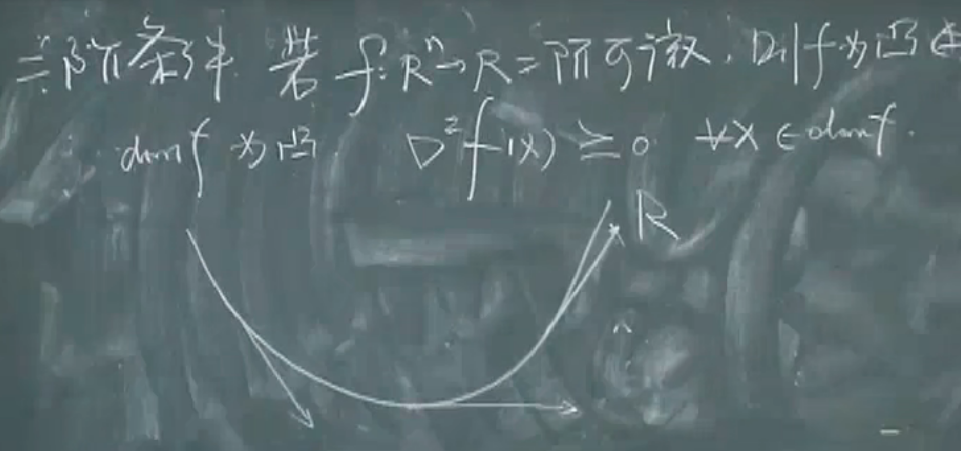 二阶条件 若 f: Rⁿ→R 二阶可微, 则 f 为凸
domf 为凸 ∇²f(x) ≥ 0 ∀x ∈ domf.
R